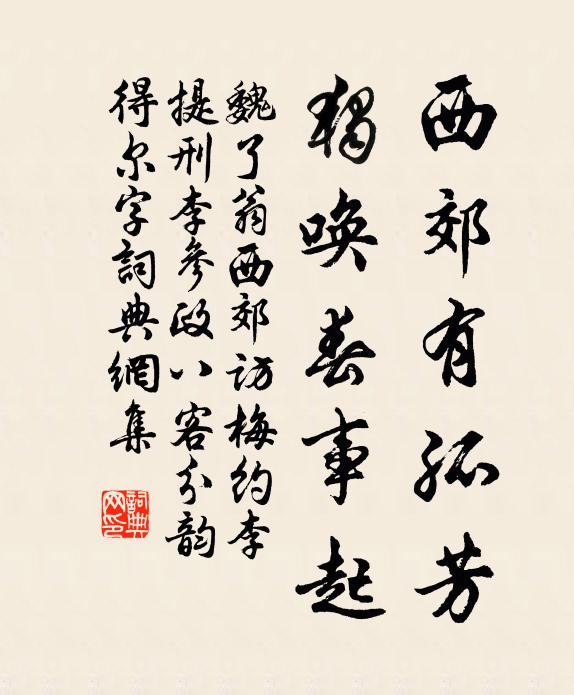 西郊有孤芳
獨喚春事起
魏了翁西郊访梅約李
提刑李參政八客分韵
得尔字詞典網集
詞典网印